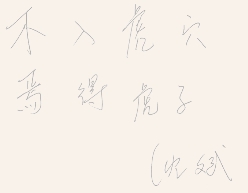 不入虎穴
焉得虎子
(沈斌